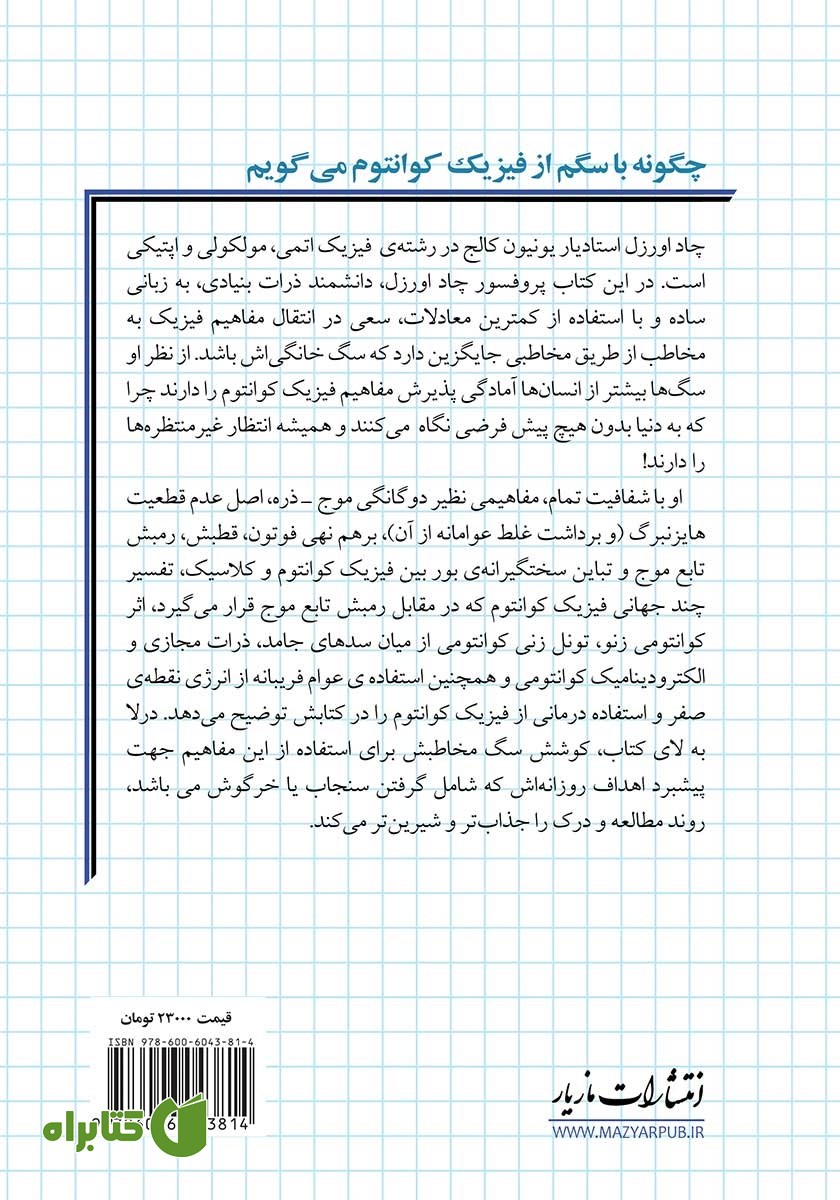 چگونه با سگم از فیزیک کوانتوم می گویم
چاد اورزل استادیار یونیون کالج در رشته‌ی فیزیک اتمی، مولکولی و اپتیکی
است. در این کتاب پروفسور چاد اورزل، دانشمند ذرات بنیادی، به زبانی
ساده و با استفاده از کمترین معادلات، سعی در انتقال مفاهیم فیزیک به
مخاطب از طریق مخاطبی جایگزین دارد که سگ خانگی‌اش باشد. از نظر او
سگ‌ها بیشتر از انسان‌ها آمادگی پذیرش مفاهیم فیزیک کوانتوم را دارند چرا
که به دنیا بدون هیچ پیش فرضی نگاه می‌کنند و همیشه انتظار غیرمنتظره‌ها
را دارند!
او با شفافیت تمام، مفاهیمی نظیر دوگانگی موج ـ ذره، اصل عدم قطعیت
هایزنبرگ (و برداشت غلط عوامانه از آن)، برهم نهی فوتون، قطبش، رمبش
تابع موج و تباین سختگیرانه‌ی بور بین فیزیک کوانتوم و کلاسیک، تفسیر
چند جهانی فیزیک کوانتوم که در مقابل رمبش تابع موج قرار می‌گیرد، اثر
کوانتومی زنو، تونل زنی کوانتومی از میان سدهای جامد، ذرات مجازی و
الکترودینامیک کوانتومی و همچنین استفاده ی عوام فریبانه از انرژی نقطه‌ی
صفر و استفاده درمانی از فیزیک کوانتوم را در کتابش توضیح می‌دهد. درلا
به لای کتاب، کوشش سگ مخاطبش برای استفاده از این مفاهیم جهت
پیشبرد اهداف روزانه‌اش که شامل گرفتن سنجاب یا خرگوش می باشد،
روند مطالعه و درک را جذاب‌تر و شیرین‌تر می‌کند.
قیمت ۲۳۰۰۰ تومان
ISBN 978-600-6043-81-4
3814
کتابراه
انتشارات مازیار
WWW.MAZYARPUB.IR